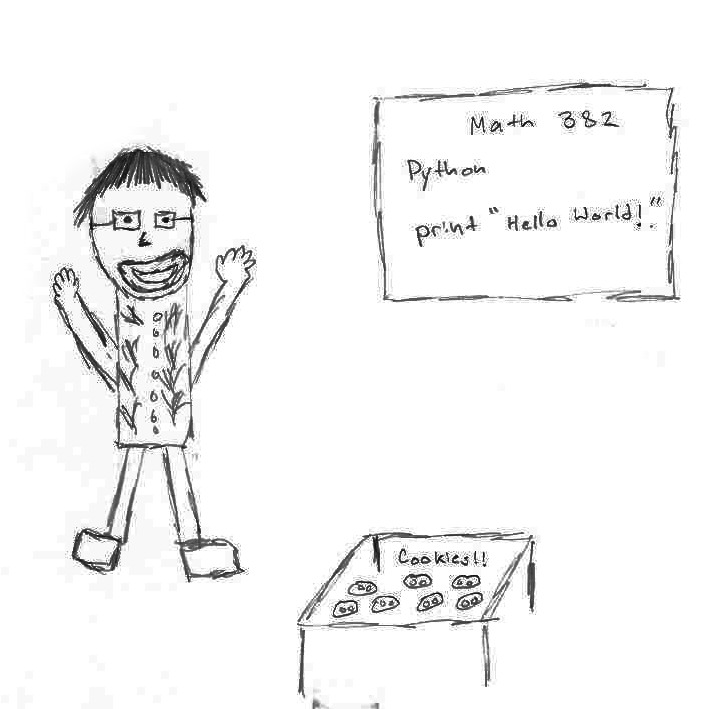 Math 382
Python
print "Hello World!"
Cookies!!